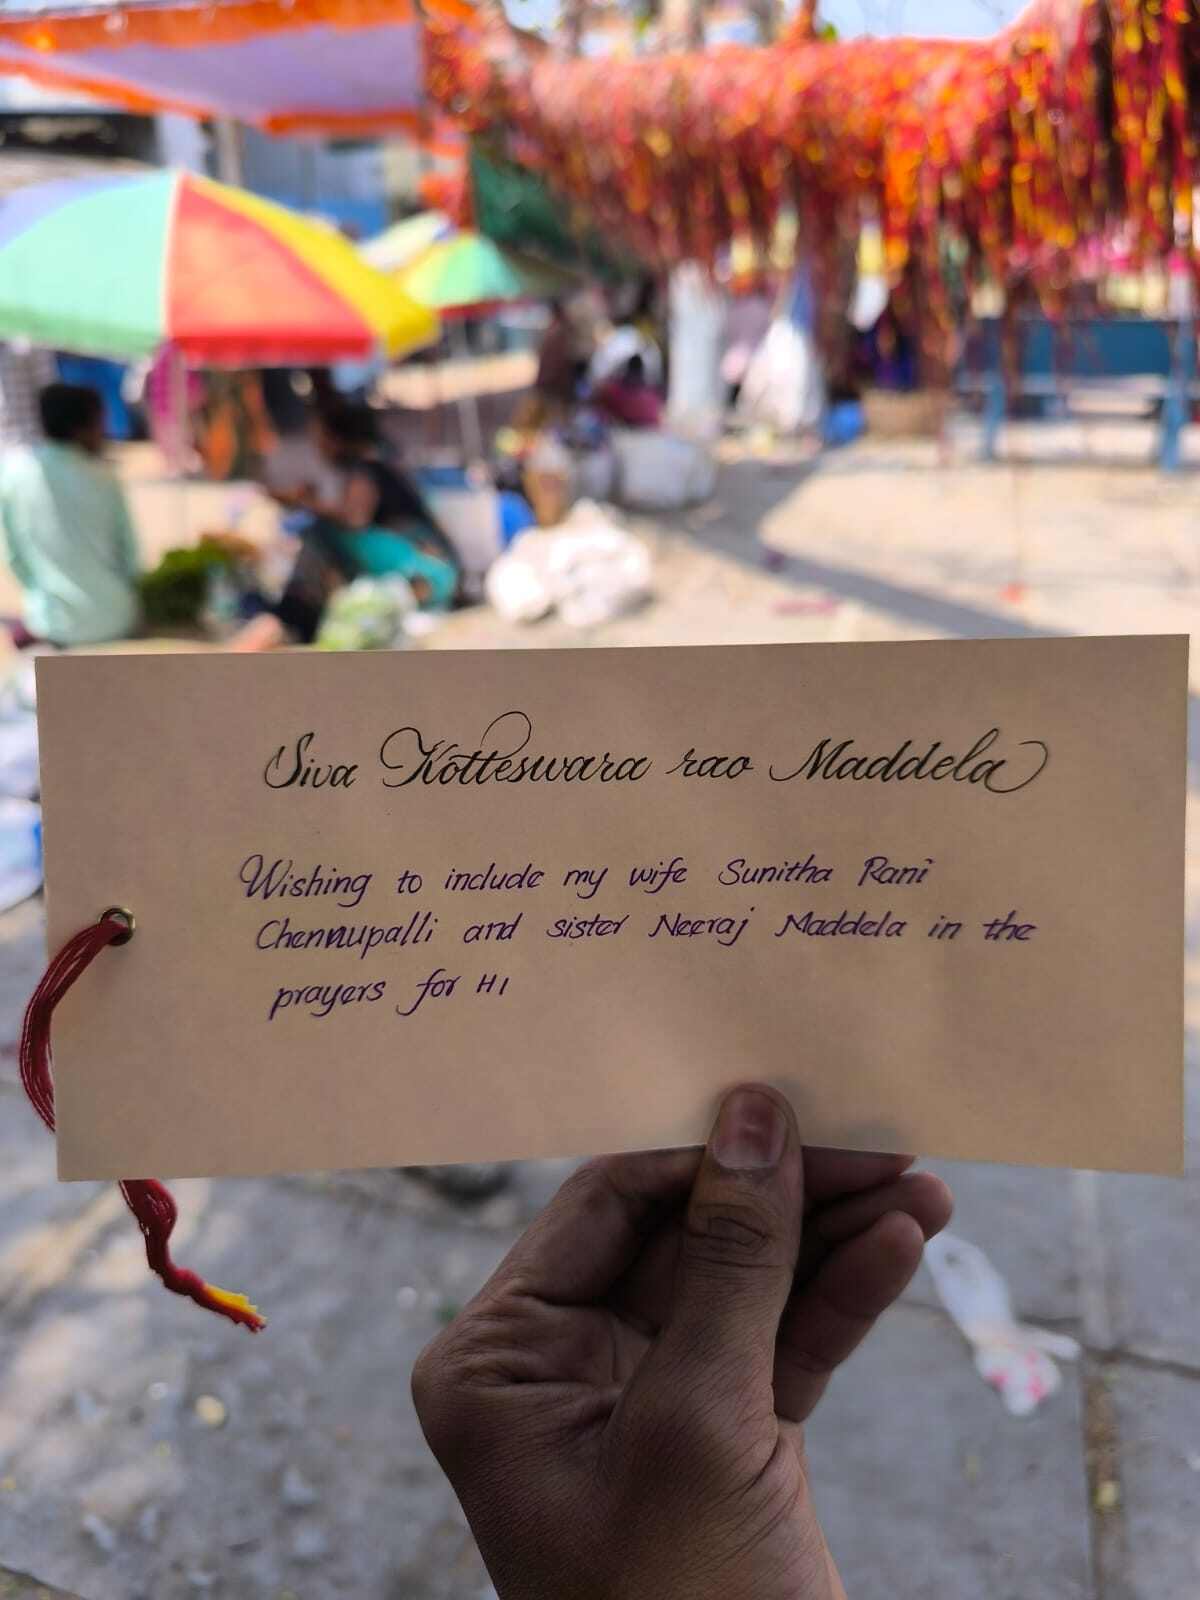 Siva Kotteswara rao Maddela
Wishing to include my wife Sunitha Rani
Chennupalli and sister Neeraj Maddela in the
prayers for H1